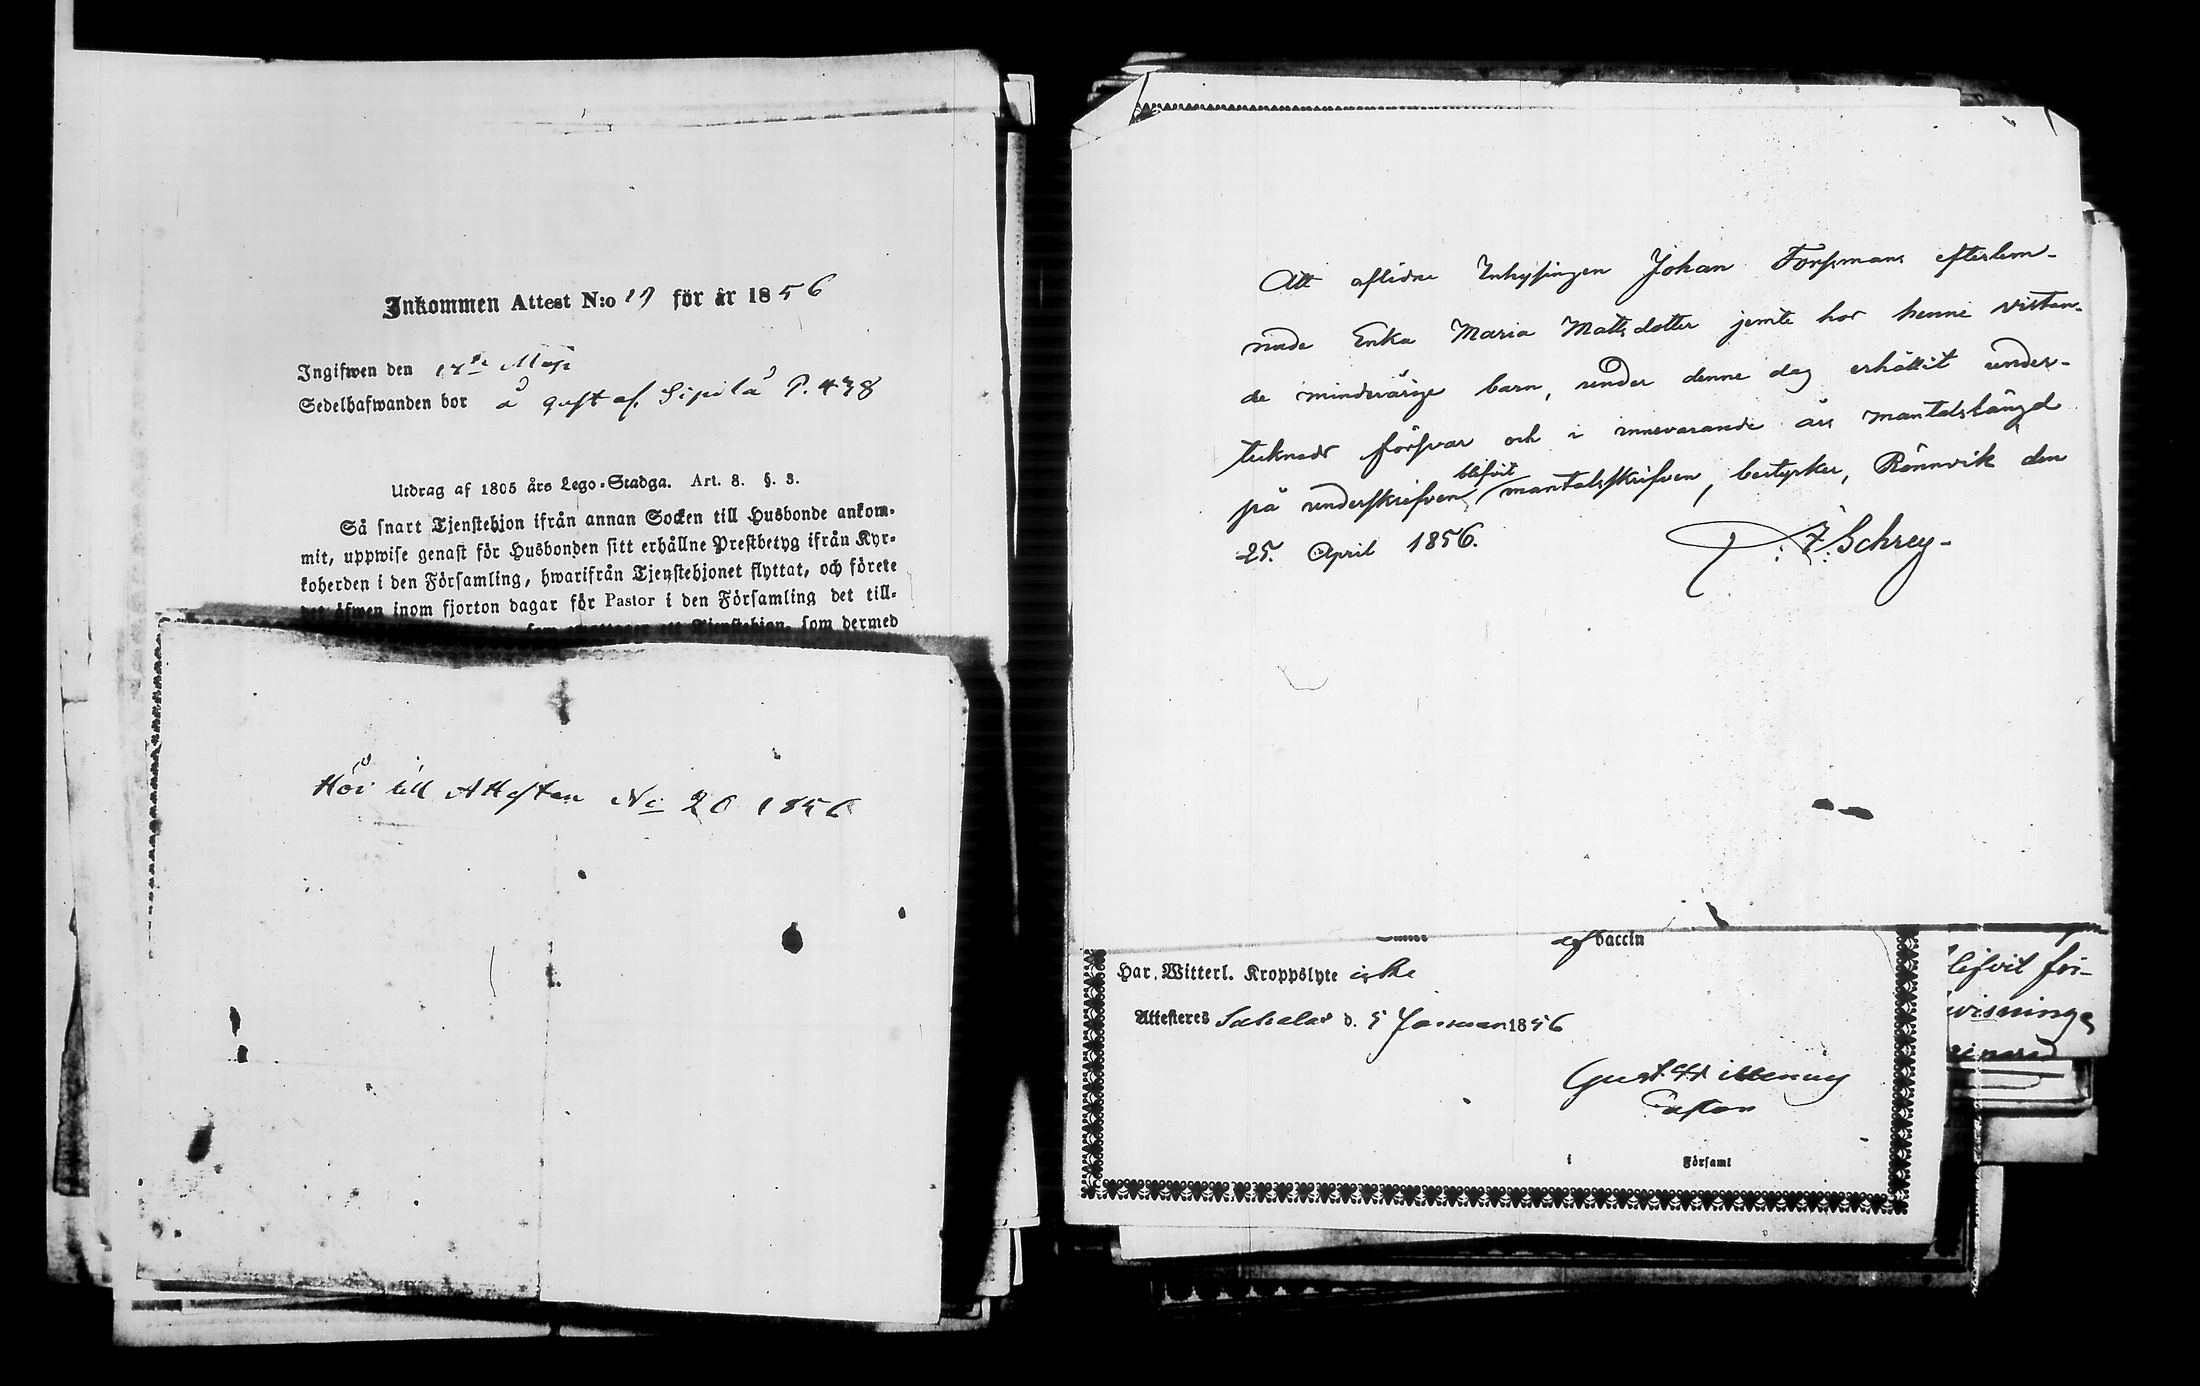 Inkommen Attest N:o 19 för år 1856
Ingifwen den 17de Maji
Sedelhafwanden bor å gust af Sipilä P. 438
Utdrag af 1805 års Lego-Stadga. Art. 8. §. 3.
Så snart Tjenstehjon ifrån annan Socken till Husbonde ankom-
mit, uppwise genast för Husbonden sitt erhållne Prestbetyg ifrån Kyr-
koherden i den Församling, hwarifrån Tjenstehjonet flyttat, och förete
det äfwen inom fjorton dagar för Pastor i den Församling det till-
som emottager ett Tjenstehjon, som dermed
Hör till Attesten No 20 1856
Att aflidne Inhysingen Johan Forssmans efterlem-
nade Enka Maria Matsdotter jemte hos henne vistan-
de minderårige barn, under denne dag erhållit under-
tecknads försvar och i innevarande års mantalslängd
på underskrefven blifvit mantalsskrifven, bestyrker, Rönnvik den
25. April 1856.
P. F. Schrey
vaccin
Har. Witterl. Kroppslyte icke
Attesteres d. 5 Januari 1856
Gust.
Pastor
i Församl
lifvit för-
wisnings